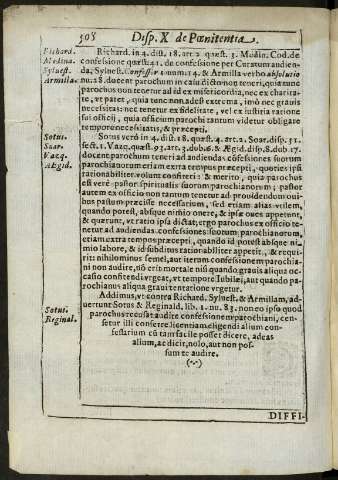 508 Disp. X de Pœnitentia.
Richard.
Medina.
Sylvest.
Armilla.
Richard. in 4. dist. 18. art. 2. quæst. 3. Medin. Cod. de
confessione quæst. 41. de confessione per Curatum audien-
da, Sylvest. Confessor 1. num. 14. & Armilla verbo absolutio
nu. 18. docent parochum in casu dicto non teneri, quia tunc
parochus non tenetur ad id ex misericordia, nec ex charita-
te, ut patet, quia tunc non adest extrema, imò nec gravis
necessitas: nec tenetur ex fidelitate, vel ex iustitia ratione
sui officij, quia officium parochi tantum videtur obligare
tempore necessitatis, & præcepti.
Sotus.
Suar.
Vazq.
Ægid.
Sotus verò in 4. dist. 18. quæst. 4. art. 2. Soar. disp. 32.
sect. 1. Vazq. quæst. 93. art. 3. dub. 6. & Ægid. disp. 8. dub. 17.
docent parochum teneri ad audiendas cōfessiones suorum
parochianorum etiam extra tempus præcepti, quoties ipsi
rationabiliter volunt confiteri: & merito, quia parochus
est verè pastor spiritualis suorum parochianorum; pastor
autem ex officio non tantum tenetur ad providendum ovi-
bus pastum præcise necessarium, sed etiam alias vtilem,
quando potest, absque nimio onere, & ipsæ oves appetunt,
& quærunt, vt ratio ipsa dictat: ergo parochus ex officio te-
netur ad audiendas confessiones suorum parochianorum,
etiam extra tempus præcepti, quando id potest absque ni-
mio labore, & id subditus rationabiliter appetit, & requi-
rit: nihilominus semel, aut iterum confessionem parochia-
ni non audire, nō erit mortale nisi quando gravis aliqua oc-
casio confitendi vrgeat, vt tempore Iubilei, aut quando pa-
rochianus aliqua gravi tentatione vrgetur.
Sotus.
Reginal.
Addimus, vt contra Richard. Sylvest. & Armillam, ad-
vertunt Sotus & Reginald. lib. 1. nu. 83. non eo ipso quod
parochus recusat audire confessionem parochiani, cen-
setur illi conferre licentiam eligendi alium con-
fessarium cū tam facile posset dicere, adeas
alium, ac dicit, nolo, aut non pos-
sum te audire.
DIFFI-